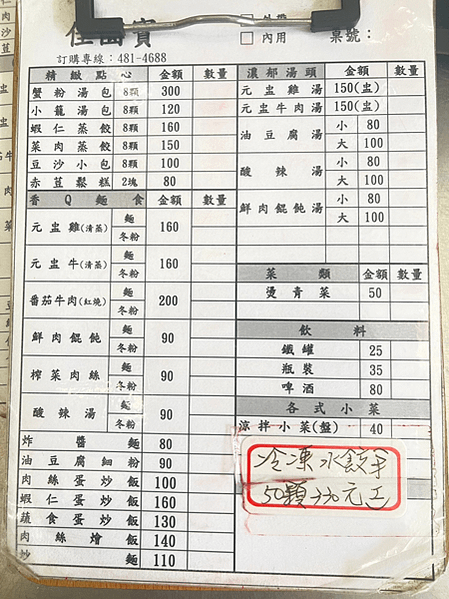 佳
□ 內用 桌號：
訂購專線：481-4688
精緻點心 金額 數量
蟹粉湯包 8顆 300
小籠湯包 8顆 120
蝦仁蒸餃 8顆 160
菜肉蒸餃 8顆 150
豆沙小包 8顆 100
赤荳鬆糕 2塊 80
香Q麵食 金額 數量
元盅雞(清蒸) 麵 冬粉 160
元盅牛(清蒸) 麵 冬粉 160
番茄牛肉(紅燒) 麵 冬粉 200
鮮肉餛飩 麵 冬粉 90
榨菜肉絲 麵 冬粉 90
酸辣湯 麵 冬粉 90
炸醬麵 80
油豆腐細粉 90
肉絲蛋炒飯 100
蝦仁蛋炒飯 160
蔬食蛋炒飯 130
肉絲燴飯 140
炒麵 110
濃郁湯頭 金額 數量
元盅雞湯 150(盅)
元盅牛肉湯 150(盅)
油豆腐湯 小 80
大 100
酸辣湯 小 80
大 100
鮮肉餛飩湯 小 80
大 100
菜類 金額 數量
燙青菜 50
飲料
鐵罐 25
瓶裝 35
啤酒 80
各式小菜
涼拌小菜(盤) 40
冷凍水餃
50顆 元